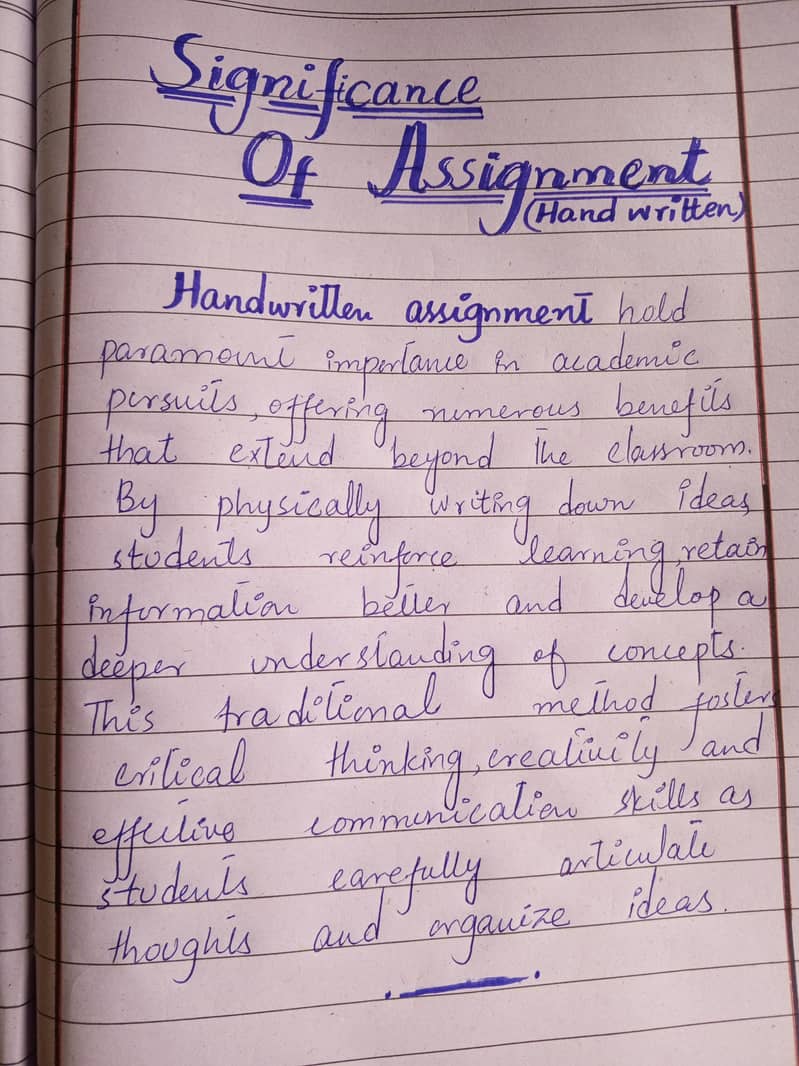 Significance
Of Assignment
(Hand written)
Handwritten assignment hold
paramount importance in academic
pursuits, offering numerous benefits
that extend beyond the classroom.
By physically writing down ideas
students reinforce learning, retain
information better and develop a
deeper understanding of concepts.
This traditional method fosters
critical thinking, creativity and
effective communication skills as
students carefully articulate
thoughts and organize ideas.